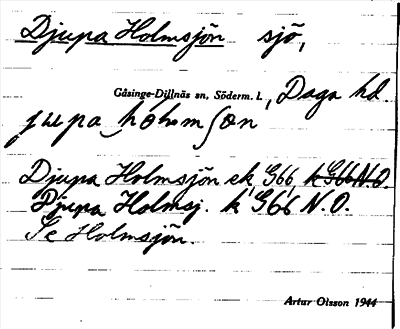 Djupa Holmsjön sjö,
Gåsinge-Dillnäs sn, Söderm. l., Daga hd.
jupa hòlmʃøn
Djupa Holmsjön ek G66, k G66 N.O.
Djupa Holmsj. k G66 N.O.
Se Holmsjön.
Artur Olsson 1944